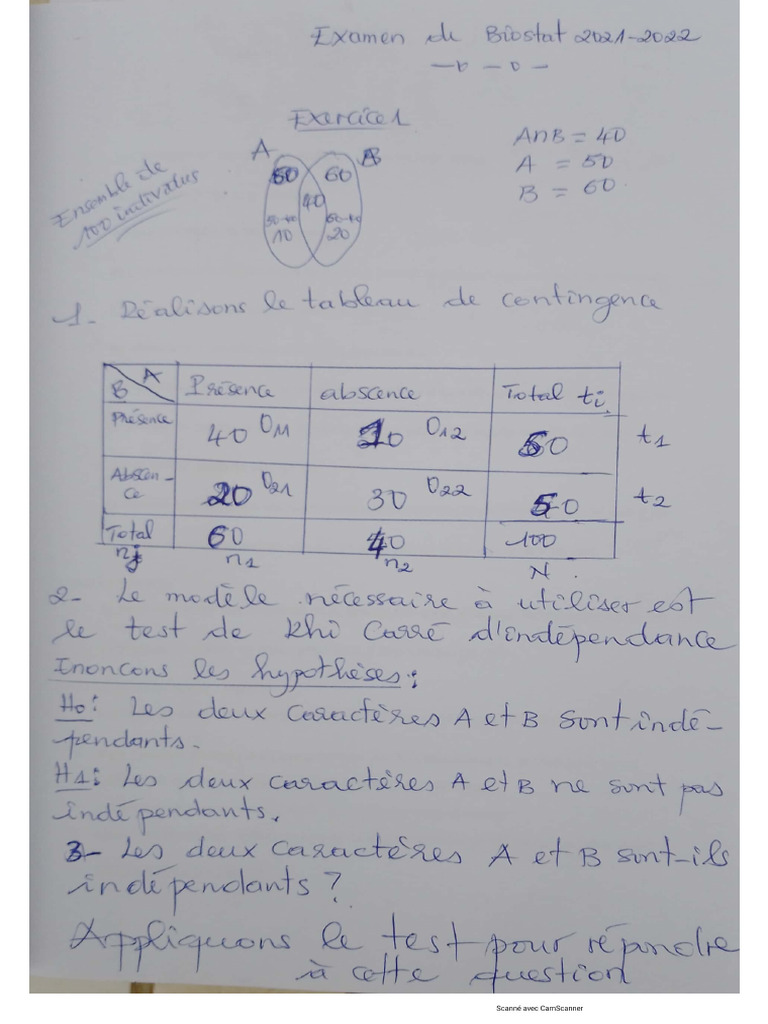 Examen de Biostat 2021-2022
Exercice 1
A B
50 60
40
50-40 60-40
10 20
A∩B = 40
A = 50
B = 60
Ensemble de
100 individus
1- Réalisons le tableau de contingence
B A Présence abscence Total ti
Présence 40 O11 10 O12 50 t1
Abscen-
ce 20 O21 30 O22 50 t2
Total 60 40 100
nj n1 n2 N
2- Le modèle nécessaire à utiliser est
le test de Khi Carré d'indépendance
Inoncons les hypothèses:
H0: Les deux caractères A et B sont indé-
pendants.
H1: Les deux caractères A et B ne sont pas
indépendants.
3- Les deux caractères A et B sont-ils
indépendants ?
Appliquons le test pour répondre
à cette question
Scanné avec CamScanner